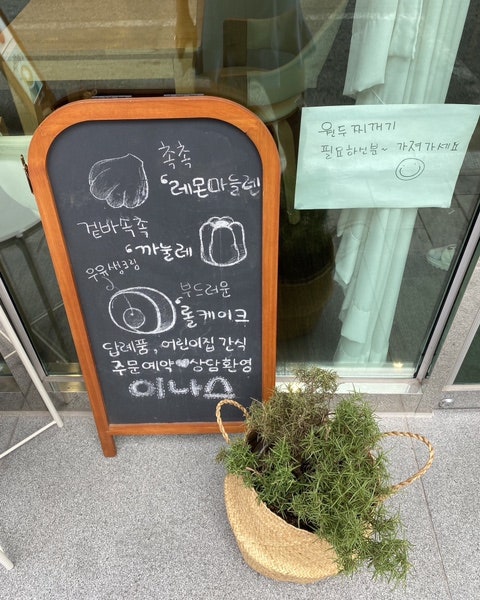 촉촉
레몬마들렌
겉바속촉
까눌레
우유생크림
부드러운
롤케이크
답례품, 어린이집 간식
주문예약♥상담환영
이나스
원두 찌꺼기
필요하신분~ 가져가세요